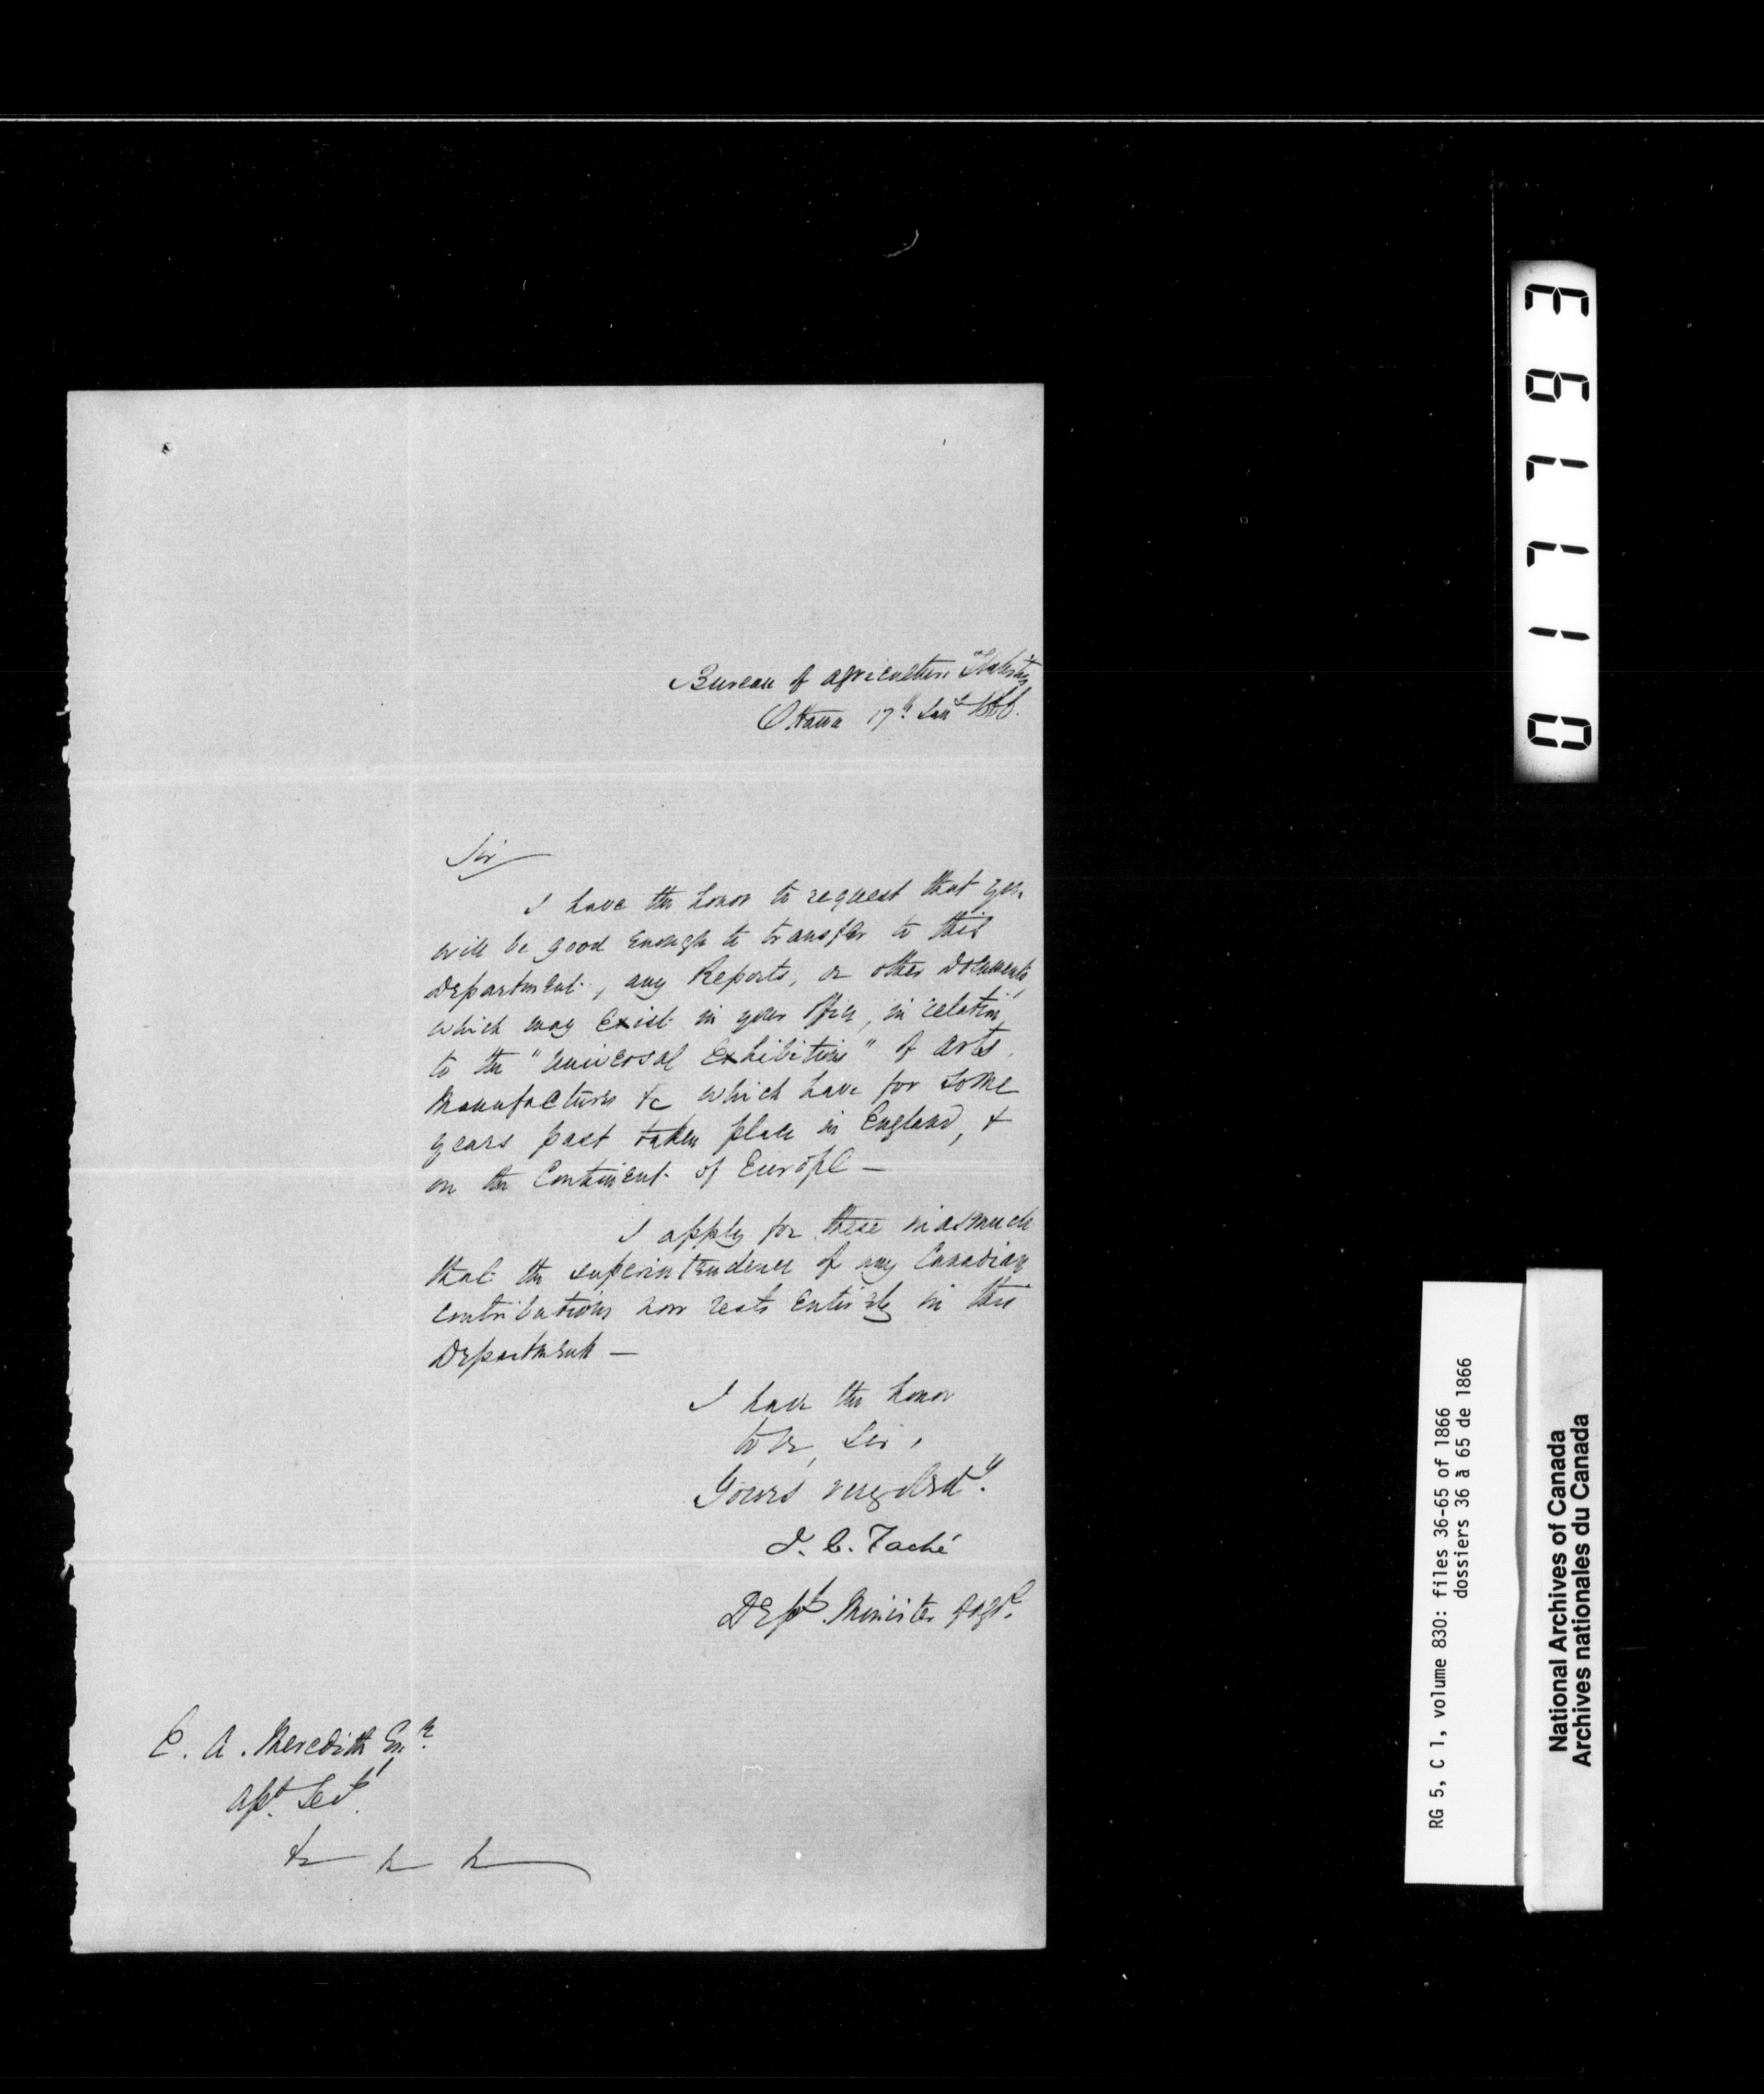 Bureau of Agriculture & Statistics
Ottawa 17th Jany 1866.
Sir
I have the honor to request that you
will be good enough to transfer to this
Department, any Reports, or other Documents,
which may exist in your Office, in relation
to the "Universal Exhibitions" of Arts,
Manufactures &c which have for some
years past taken place in England, &
on the Continent of Europe —
I apply for these inasmuch
that the superintendence of any Canadian
contributions now rests entirely in this
Department —
I have the honor
to be, Sir,
Yours very obedt
J. C. Taché
Depy Minister of Agr.
E. A. Meredith Esqr.
Asst. Secy.
&c &c &c
011793
RG 5, C 1, volume 830: files 36-65 of 1866
dossiers 36 à 65 de 1866
National Archives of Canada
Archives nationales du Canada